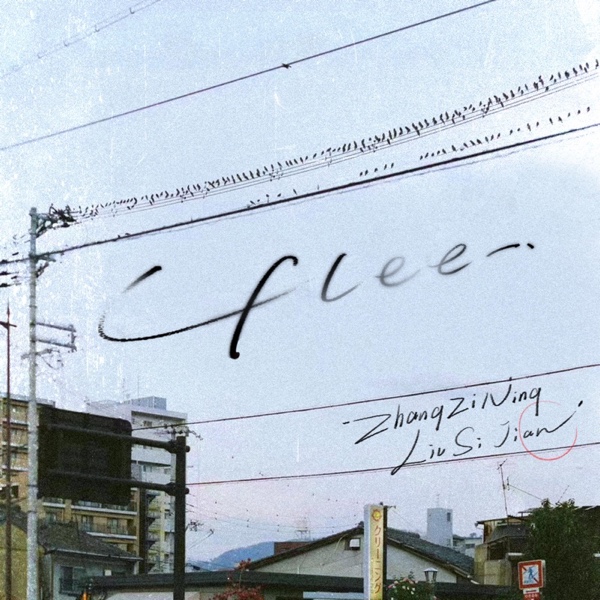 flee
ZhangZiNing
Liu Si Jian
クリーニング